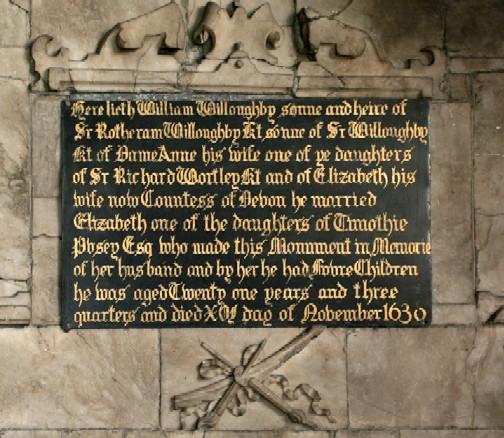 Here lieth William Willoughby sonne and heire of
Sr Rotheram Willoughby Kt, sonne of Sr Willoughby
Kt of Dame Anne his wife one of ye daughters
of Sr Richard Wortley Kt and of Elizabeth his
wife now Countess of Devon he married
Elizabeth one of the daughters of Timothie
Pusey Esq who made this Monument in Memorie
of her husband and by her he had Fovre Children
he was aged Twenty one years and three
quarters and died XVJ day of November 1630